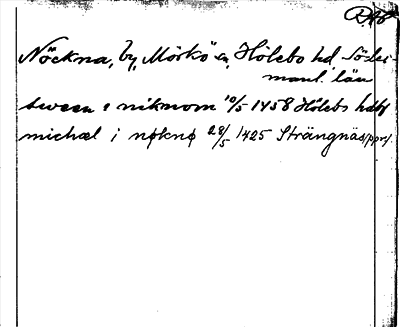 Nöckna, by, Mörkö sn, Hölebo hd, Söder-
manl. län
sween i niknom 10/5 1458 Hölebo hdbf
michæl i nøknø 28/5 1425 Strängnäs (ppr).